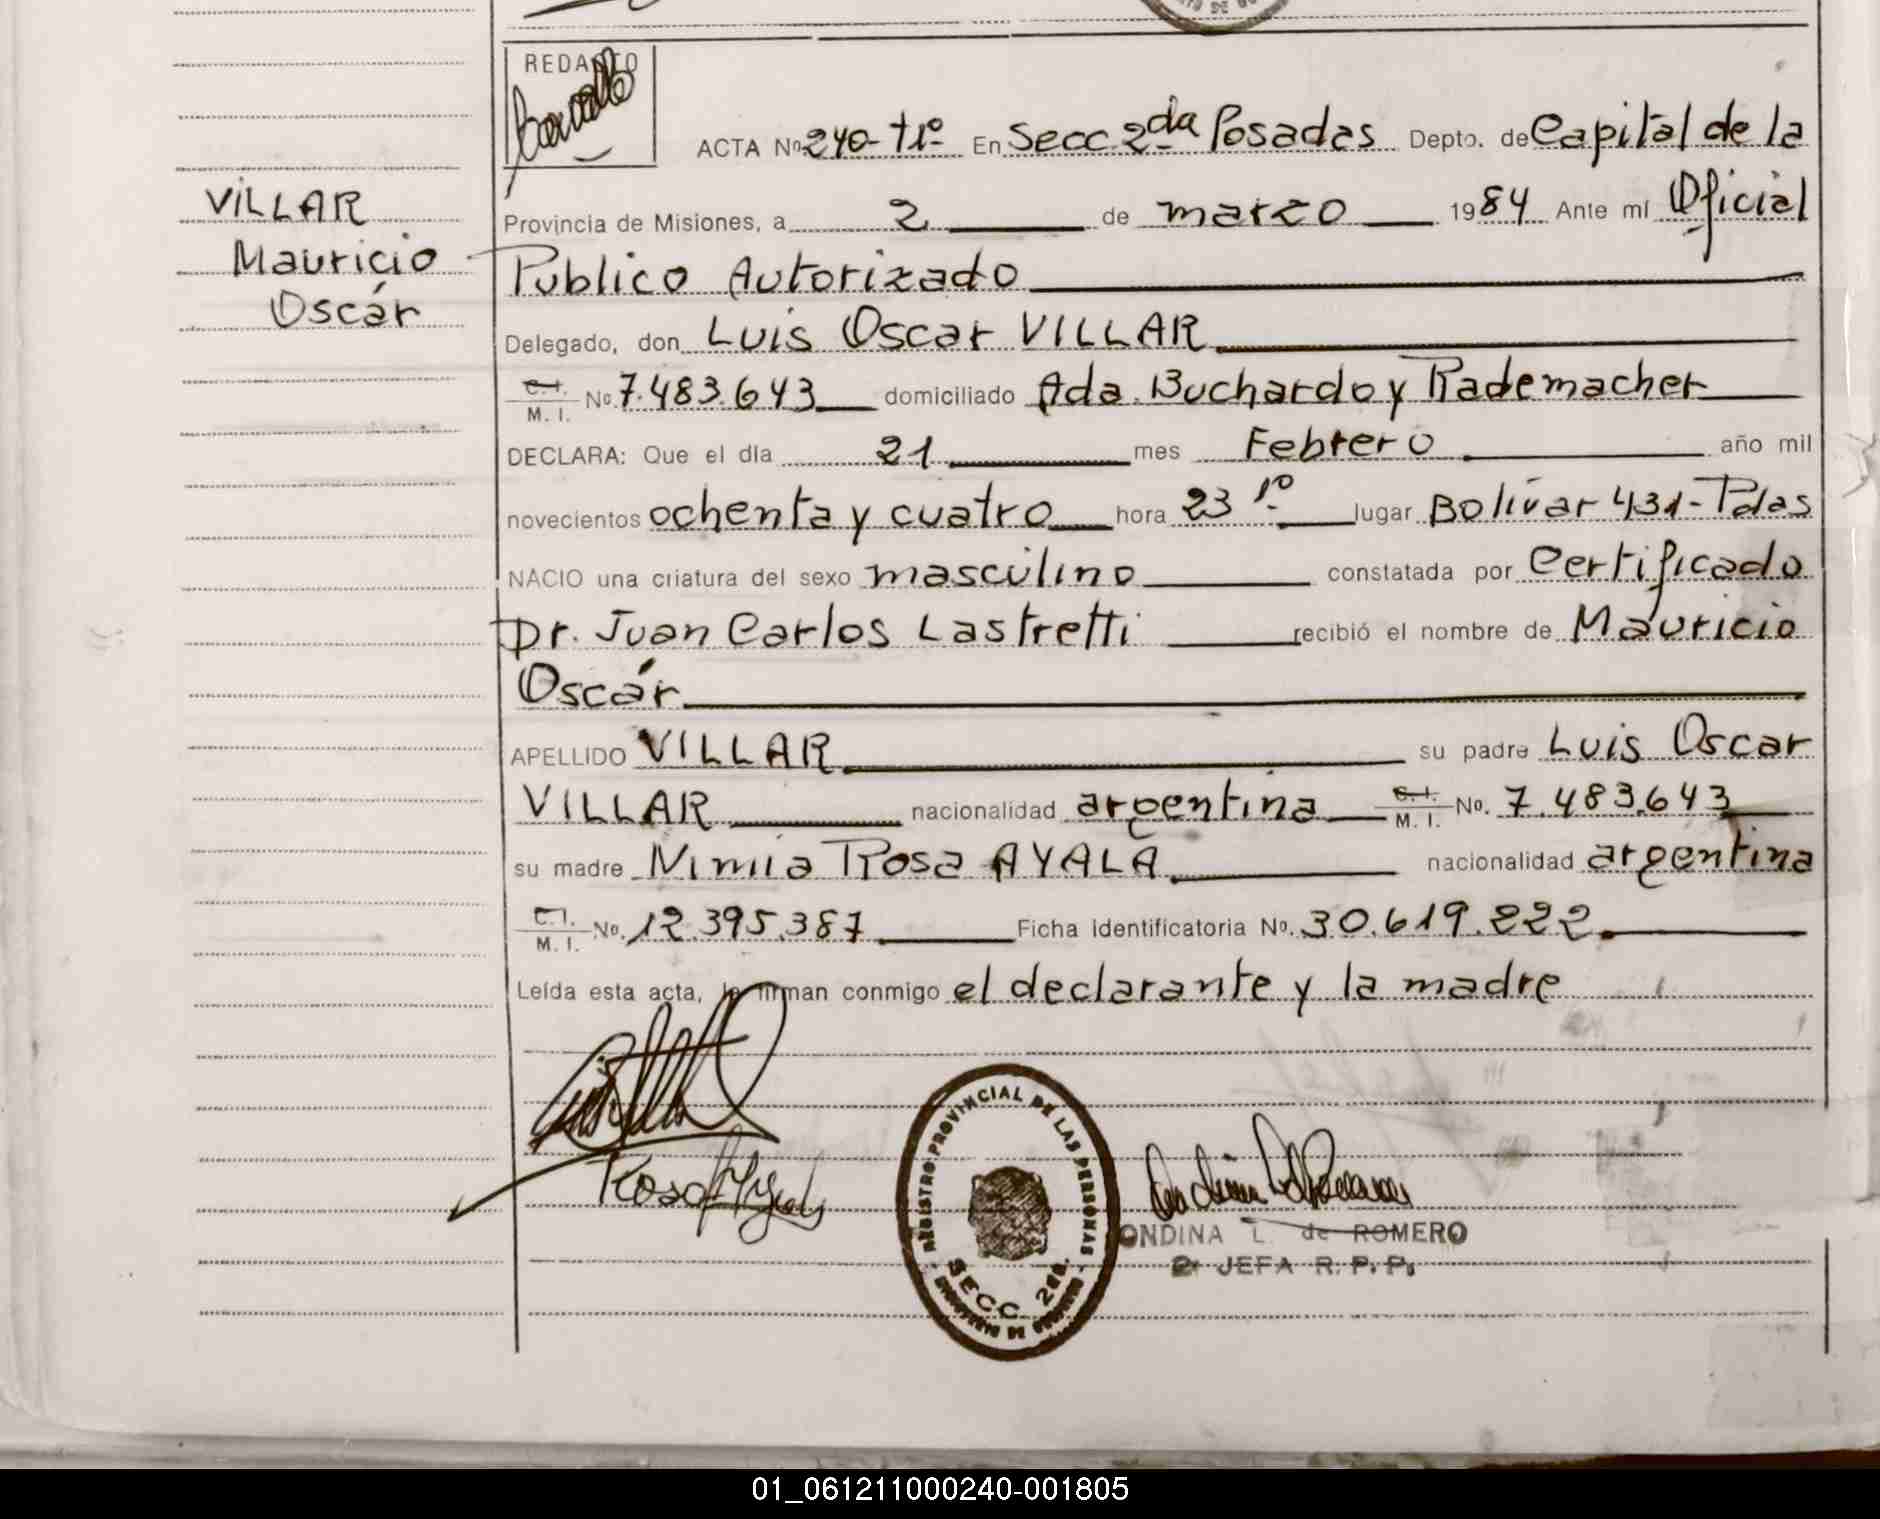 REDACTO
ACTA Nº 240-T1º En Secc 2da Posadas Depto. de Capital de la
VILLAR
Mauricio
Oscár
Provincia de Misiones, a 2 de marzo 1984 Ante mí Oficial
Publico Autorizado
Delegado, don Luis Oscar VILLAR
C.I. M. I. No. 7.483.643 domiciliado Ada. Buchardo y Rademacher
DECLARA: Que el día 21 mes Febrero año mil
novecientos ochenta y cuatro hora 23 10 lugar Bolívar 431-Pdas
NACIO una criatura del sexo masculino constatada por Certificado
Dr. Juan Carlos Lastretti recibió el nombre de Mauricio
Oscár
APELLIDO VILLAR su padre Luis Oscar
VILLAR nacionalidad argentina C.I. M. I. No. 7.483.643
su madre Nimia Rosa AYALA nacionalidad argentina
C.I. M. I. No. 12.395.387 Ficha identificatoria No. 30.619.222
Leída esta acta, la firman conmigo el declarante y la madre
REGISTRO PROVINCIAL DE LAS PERSONAS
SECC. 2da.
MINISTERIO DE GOBIERNO
Rosa Ayala
ONDINA L. de ROMERO
2ª JEFA R. P. P.
01_061211000240-001805